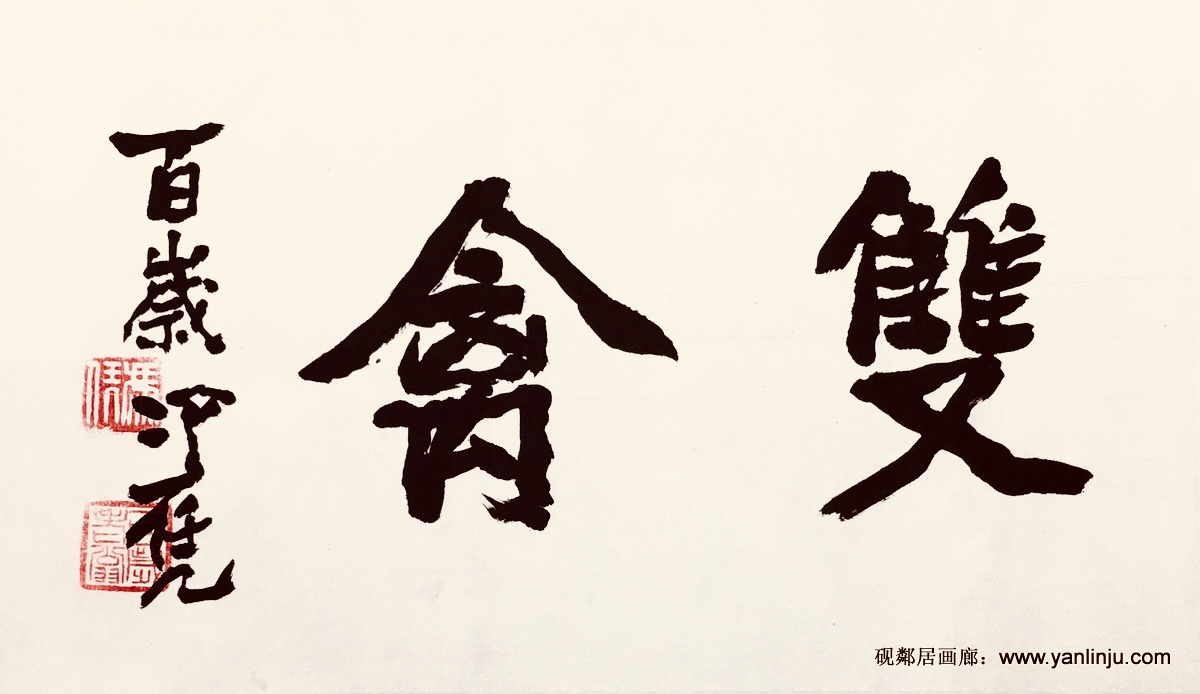 雙禽
百歲冯凭
砚鄰居画廊：www.yanlinju.com